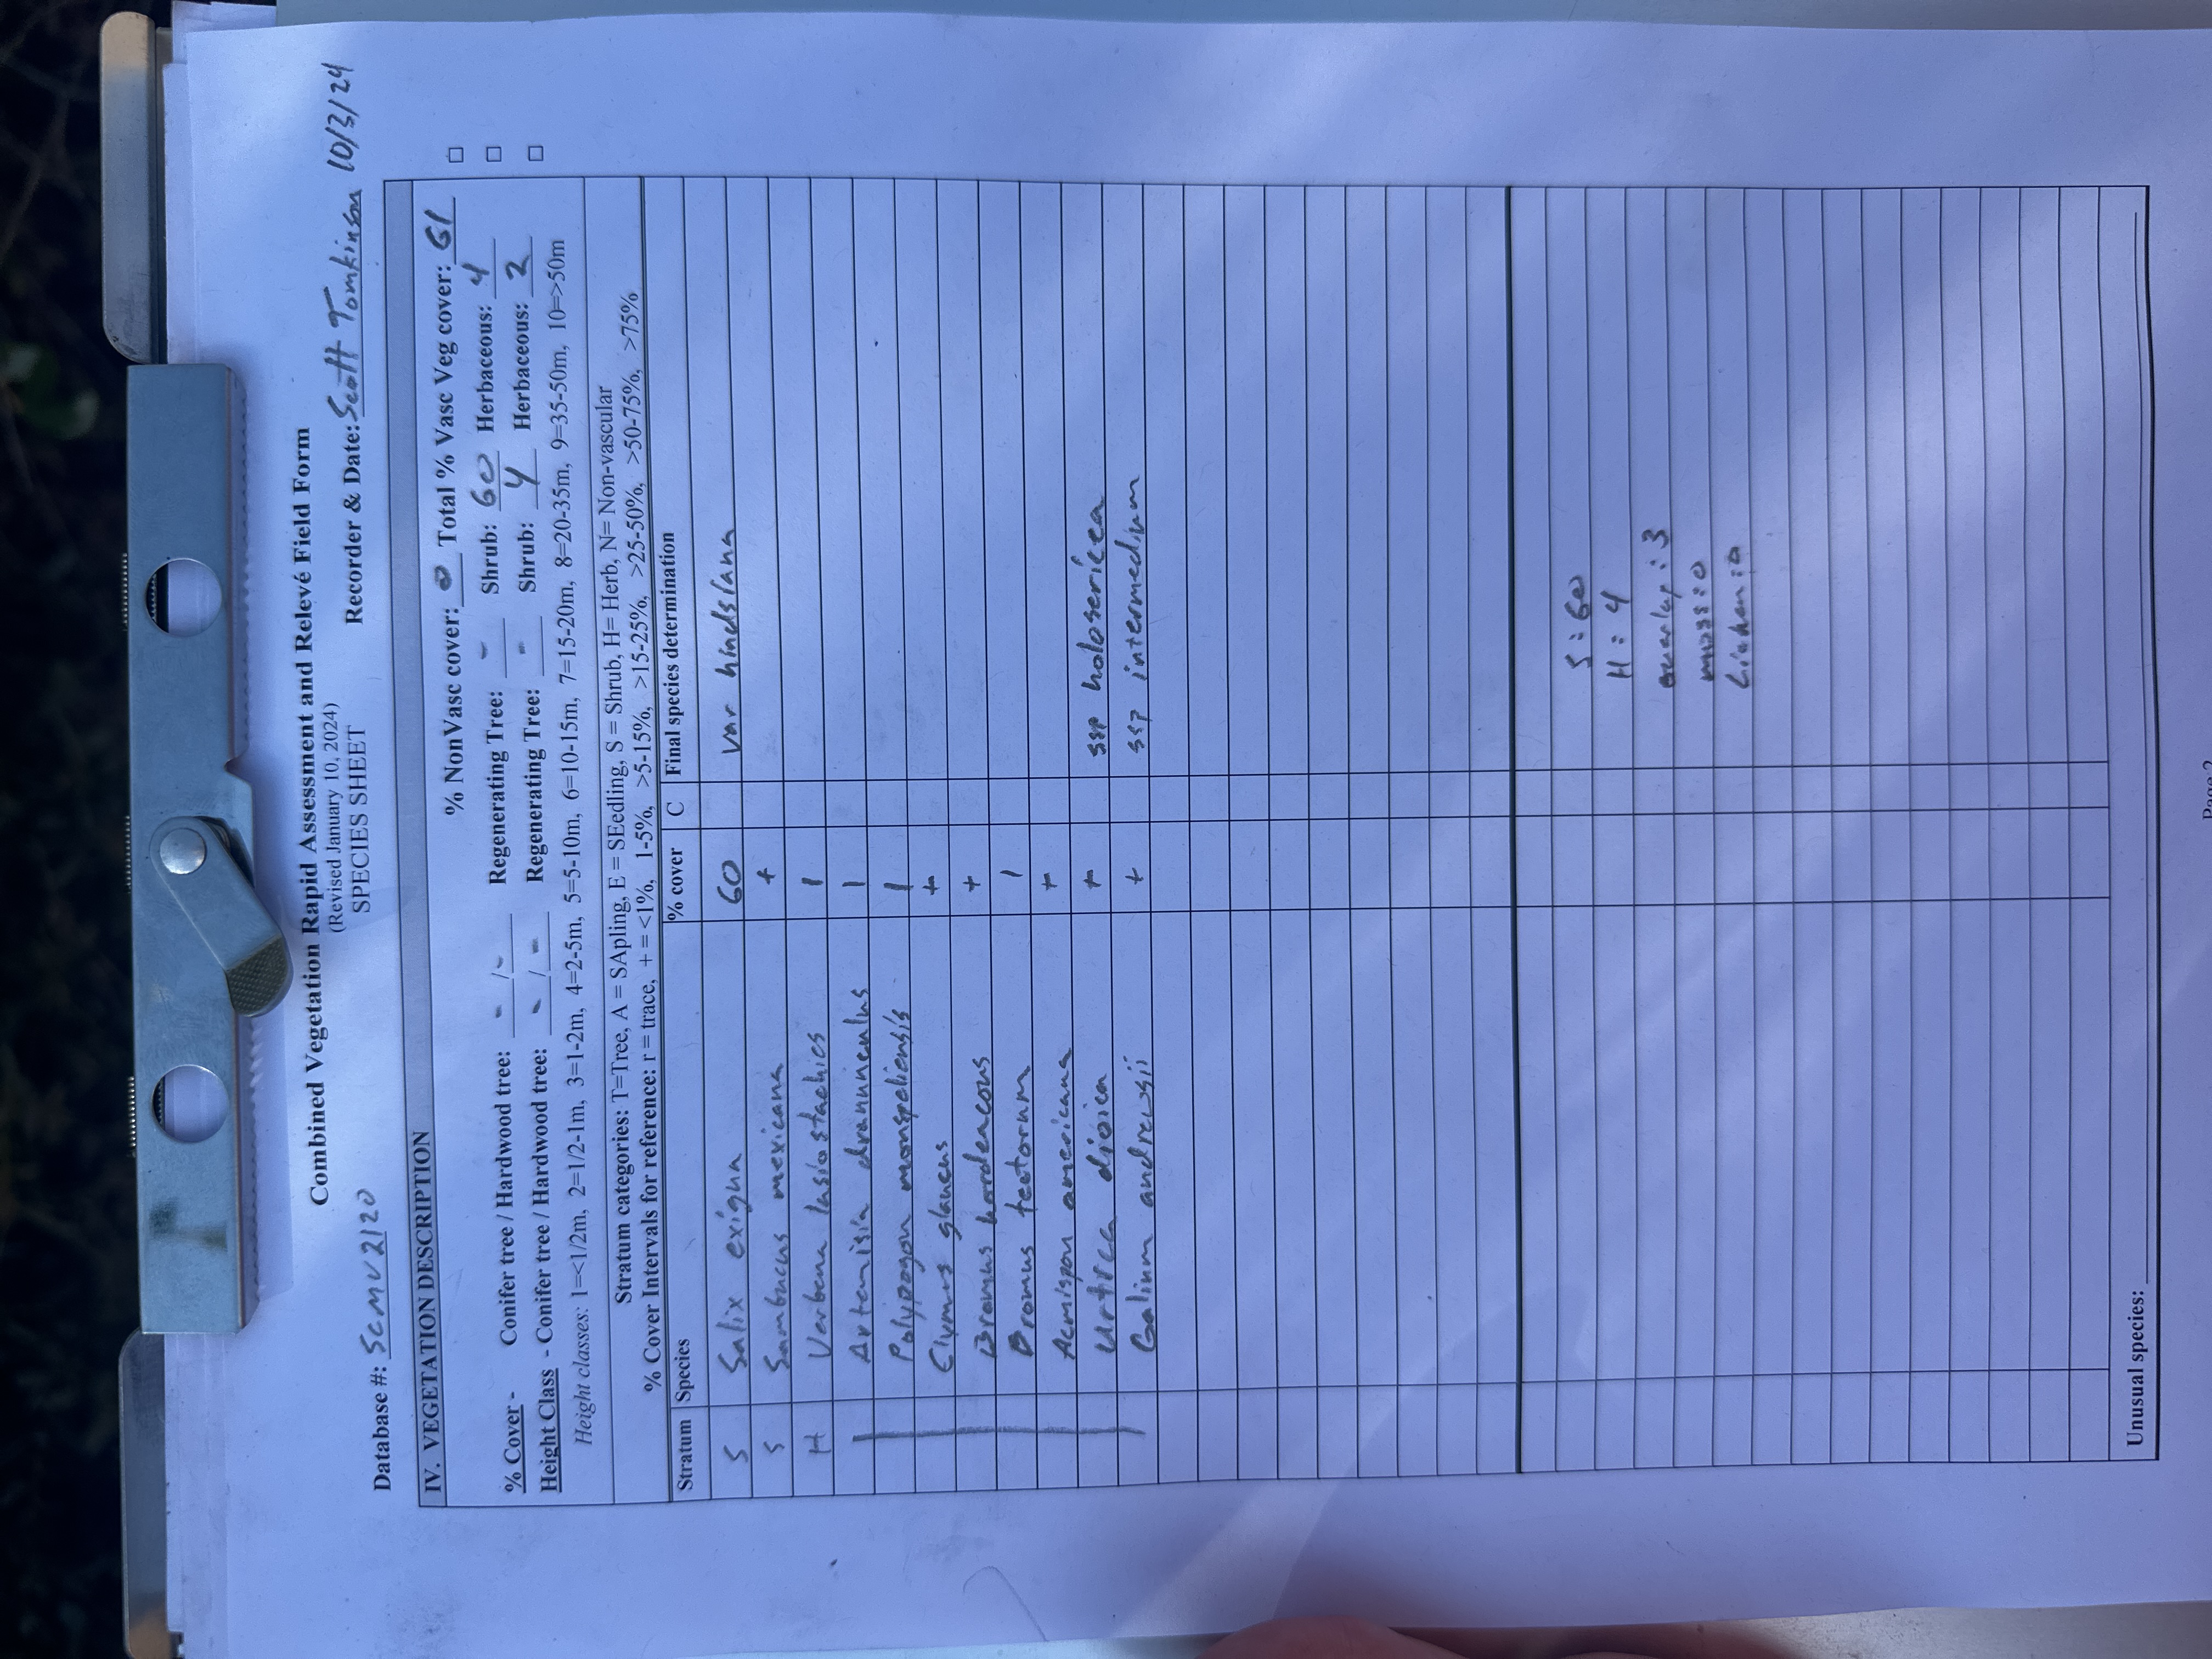 Combined Vegetation Rapid Assessment and Relevé Field Form
(Revised January 10, 2024)
SPECIES SHEET
Database #: SCMV2120 Recorder & Date: Scott Tomkinson 10/3/24
IV. VEGETATION DESCRIPTION
% NonVasc cover: 0 Total % Vasc Veg cover: 61
% Cover - Conifer tree / Hardwood tree: - / - Regenerating Tree: - Shrub: 60 Herbaceous: 4
Height Class - Conifer tree / Hardwood tree: - / - Regenerating Tree: - Shrub: 4 Herbaceous: 2
Height classes: 1=<1/2m, 2=1/2-1m, 3=1-2m, 4=2-5m, 5=5-10m, 6=10-15m, 7=15-20m, 8=20-35m, 9=35-50m, 10=>50m
Stratum categories: T=Tree, A = SApling, E = SEedling, S = Shrub, H= Herb, N= Non-vascular
% Cover Intervals for reference: r = trace, + = <1%, 1-5%, >5-15%, >15-25%, >25-50%, >50-75%, >75%
Stratum Species % cover C Final species determination
S Salix exigua 60 var hindsiana
S Sambucus mexicana +
H Verbena lasiostachies 1
Artemisia dranunculus 1
Polypogon monspeliensis 1
Elymus glaucus +
Bromus hordeaceous +
Bromus tectorum 1
Acmispon americana +
Urtica dioica + ssp holosericea
Galium andrewsii + ssp intermedium
S: 60
H: 4
overlap: 3
moss: 0
Lichen: 0
Unusual species:
Page 2